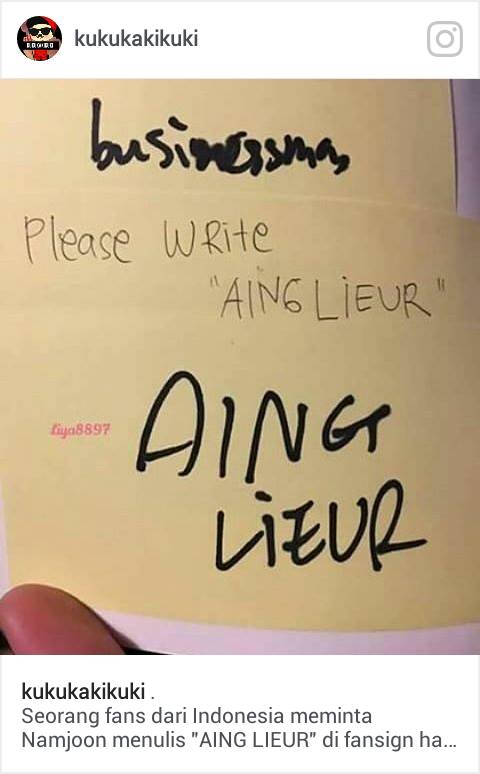 kukukakikuki
businessman
Please WRite
"AING LiEUR"
Liya8897
AING
LiEUR
kukukakikuki .
Seorang fans dari Indonesia meminta
Namjoon menulis "AING LIEUR" di fansign ha...